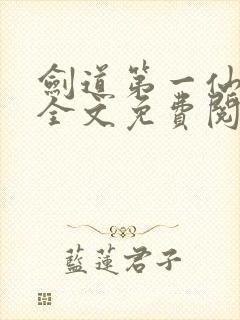 劍道第一仙
全文免費閱
藍蓮君子